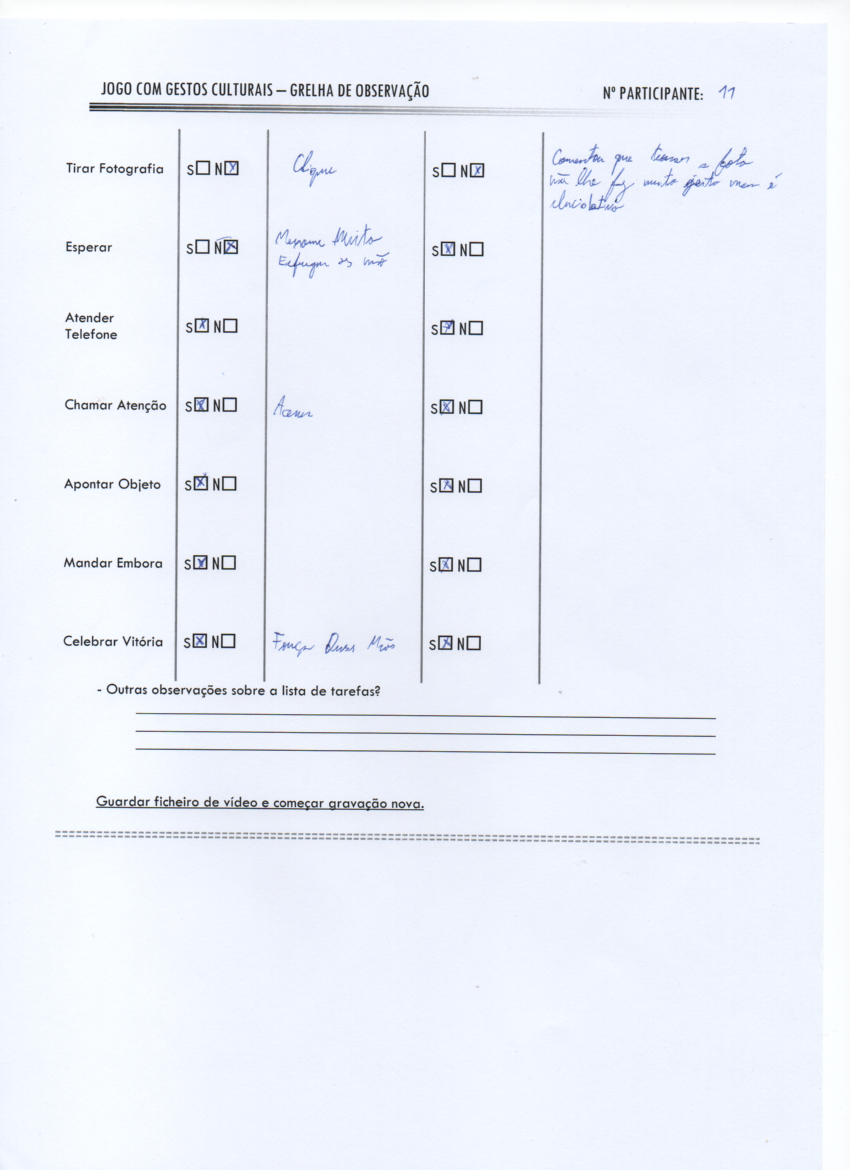 JOGO COM GESTOS CULTURAIS – GRELHA DE OBSERVAÇÃO
Nº PARTICIPANTE: 11
Tirar Fotografia S N X Clique S N X Comentou que tirar a foto
não lhe faz muito jeito mas é
Esperar S N X Muito S X N
Esfregar as mãos
Atender
Telefone S X N S X N
Chamar Atenção S X N Acenar S X N
Apontar Objeto S X N S X N
Mandar Embora S X N S X N
Celebrar Vitória S X N Força Duas Mãos S X N
- Outras observações sobre a lista de tarefas?
Guardar ficheiro de vídeo e começar gravação nova.